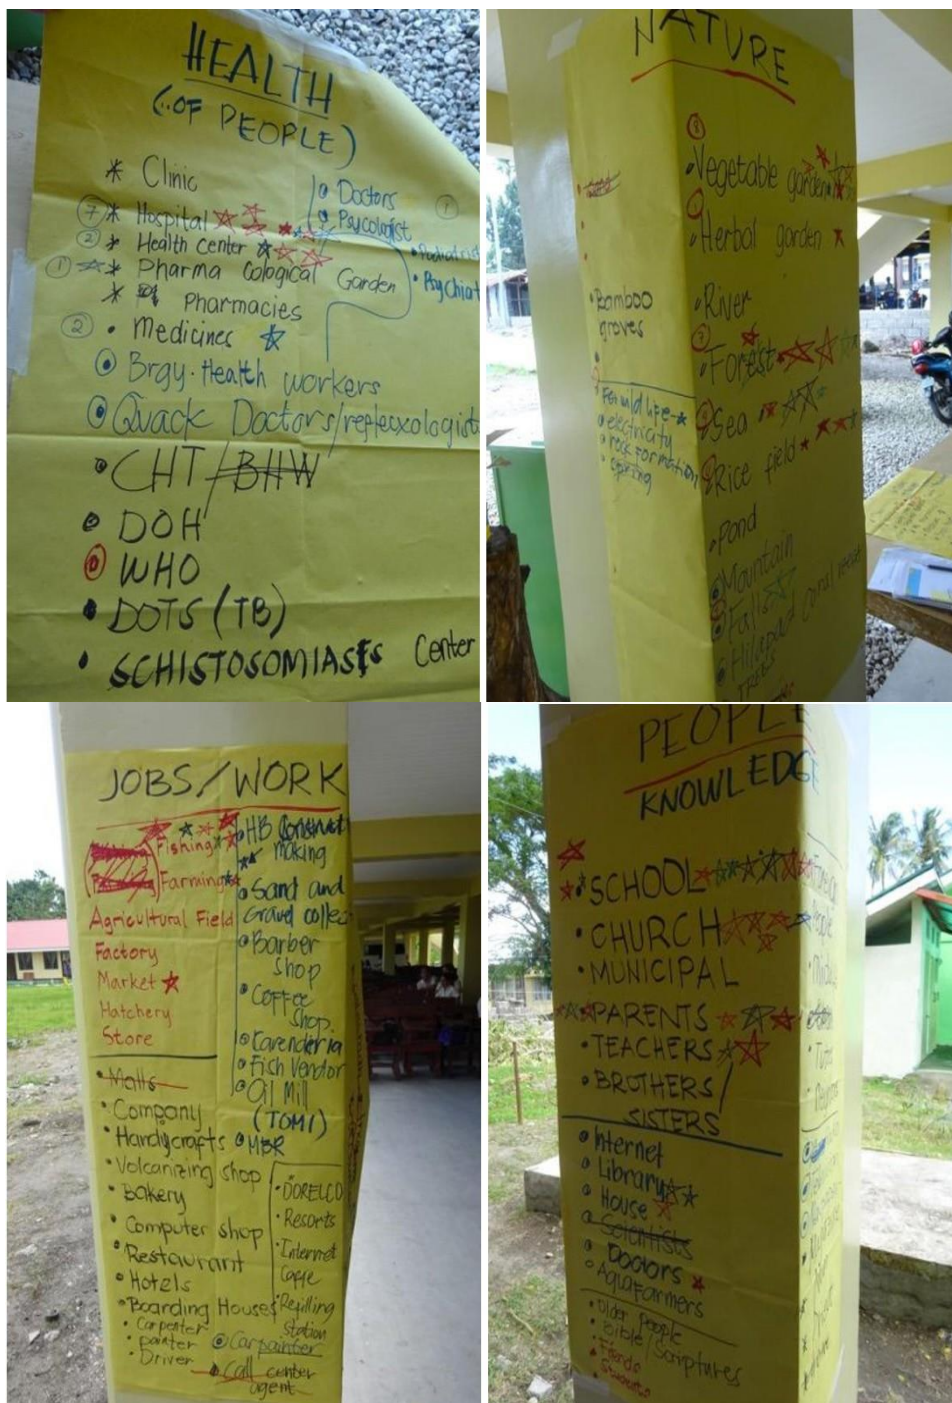 HEALTH
(..OF PEOPLE)
* Clinic
7 * Hospital
2 * Health center
1 * Pharma cological Garden
* Pharmacies
2 • Medicines
Brgy. Health workers
Quack Doctors/reflexxologist
CHT / BHW
DOH
WHO
DOTS (TB)
SCHISTOSOMIASIS Center
Doctors
Psycologist
1
NATURE
Bamboo
groves
For wild life
electricity
rock formation
spring
Vegetable garden
Herbal garden
River
Forest
Sea
Rice field
Pond
Mountain
Falls
JOBS/WORK
Fishing
Farming
Agricultural Field
Factory
Market
Hatchery
Store
Malls
Company
Handycrafts
Volcanizing shop
Bakery
Computer shop
Restaurant
Hotels
Boarding Houses
Carpenter
painter
Driver
HB Construct
making
Sand and
Gravel collec
Barber
shop
Coffee
Shop.
Karenderia
Fish Vendor
Oil Mill
(TOMI)
MBR
DORELCO
Resorts
Internet
Cafe
Refilling
Station
Carpainter
Call center
agent
PEOPLE
KNOWLEDGE
SCHOOL
CHURCH
MUNICIPAL
PARENTS
TEACHERS
BROTHERS/
SISTERS
Internet
Library
House
Scientists
Doctors
AquaFarmers
Older people
Bible/Scriptures
Friends
Students